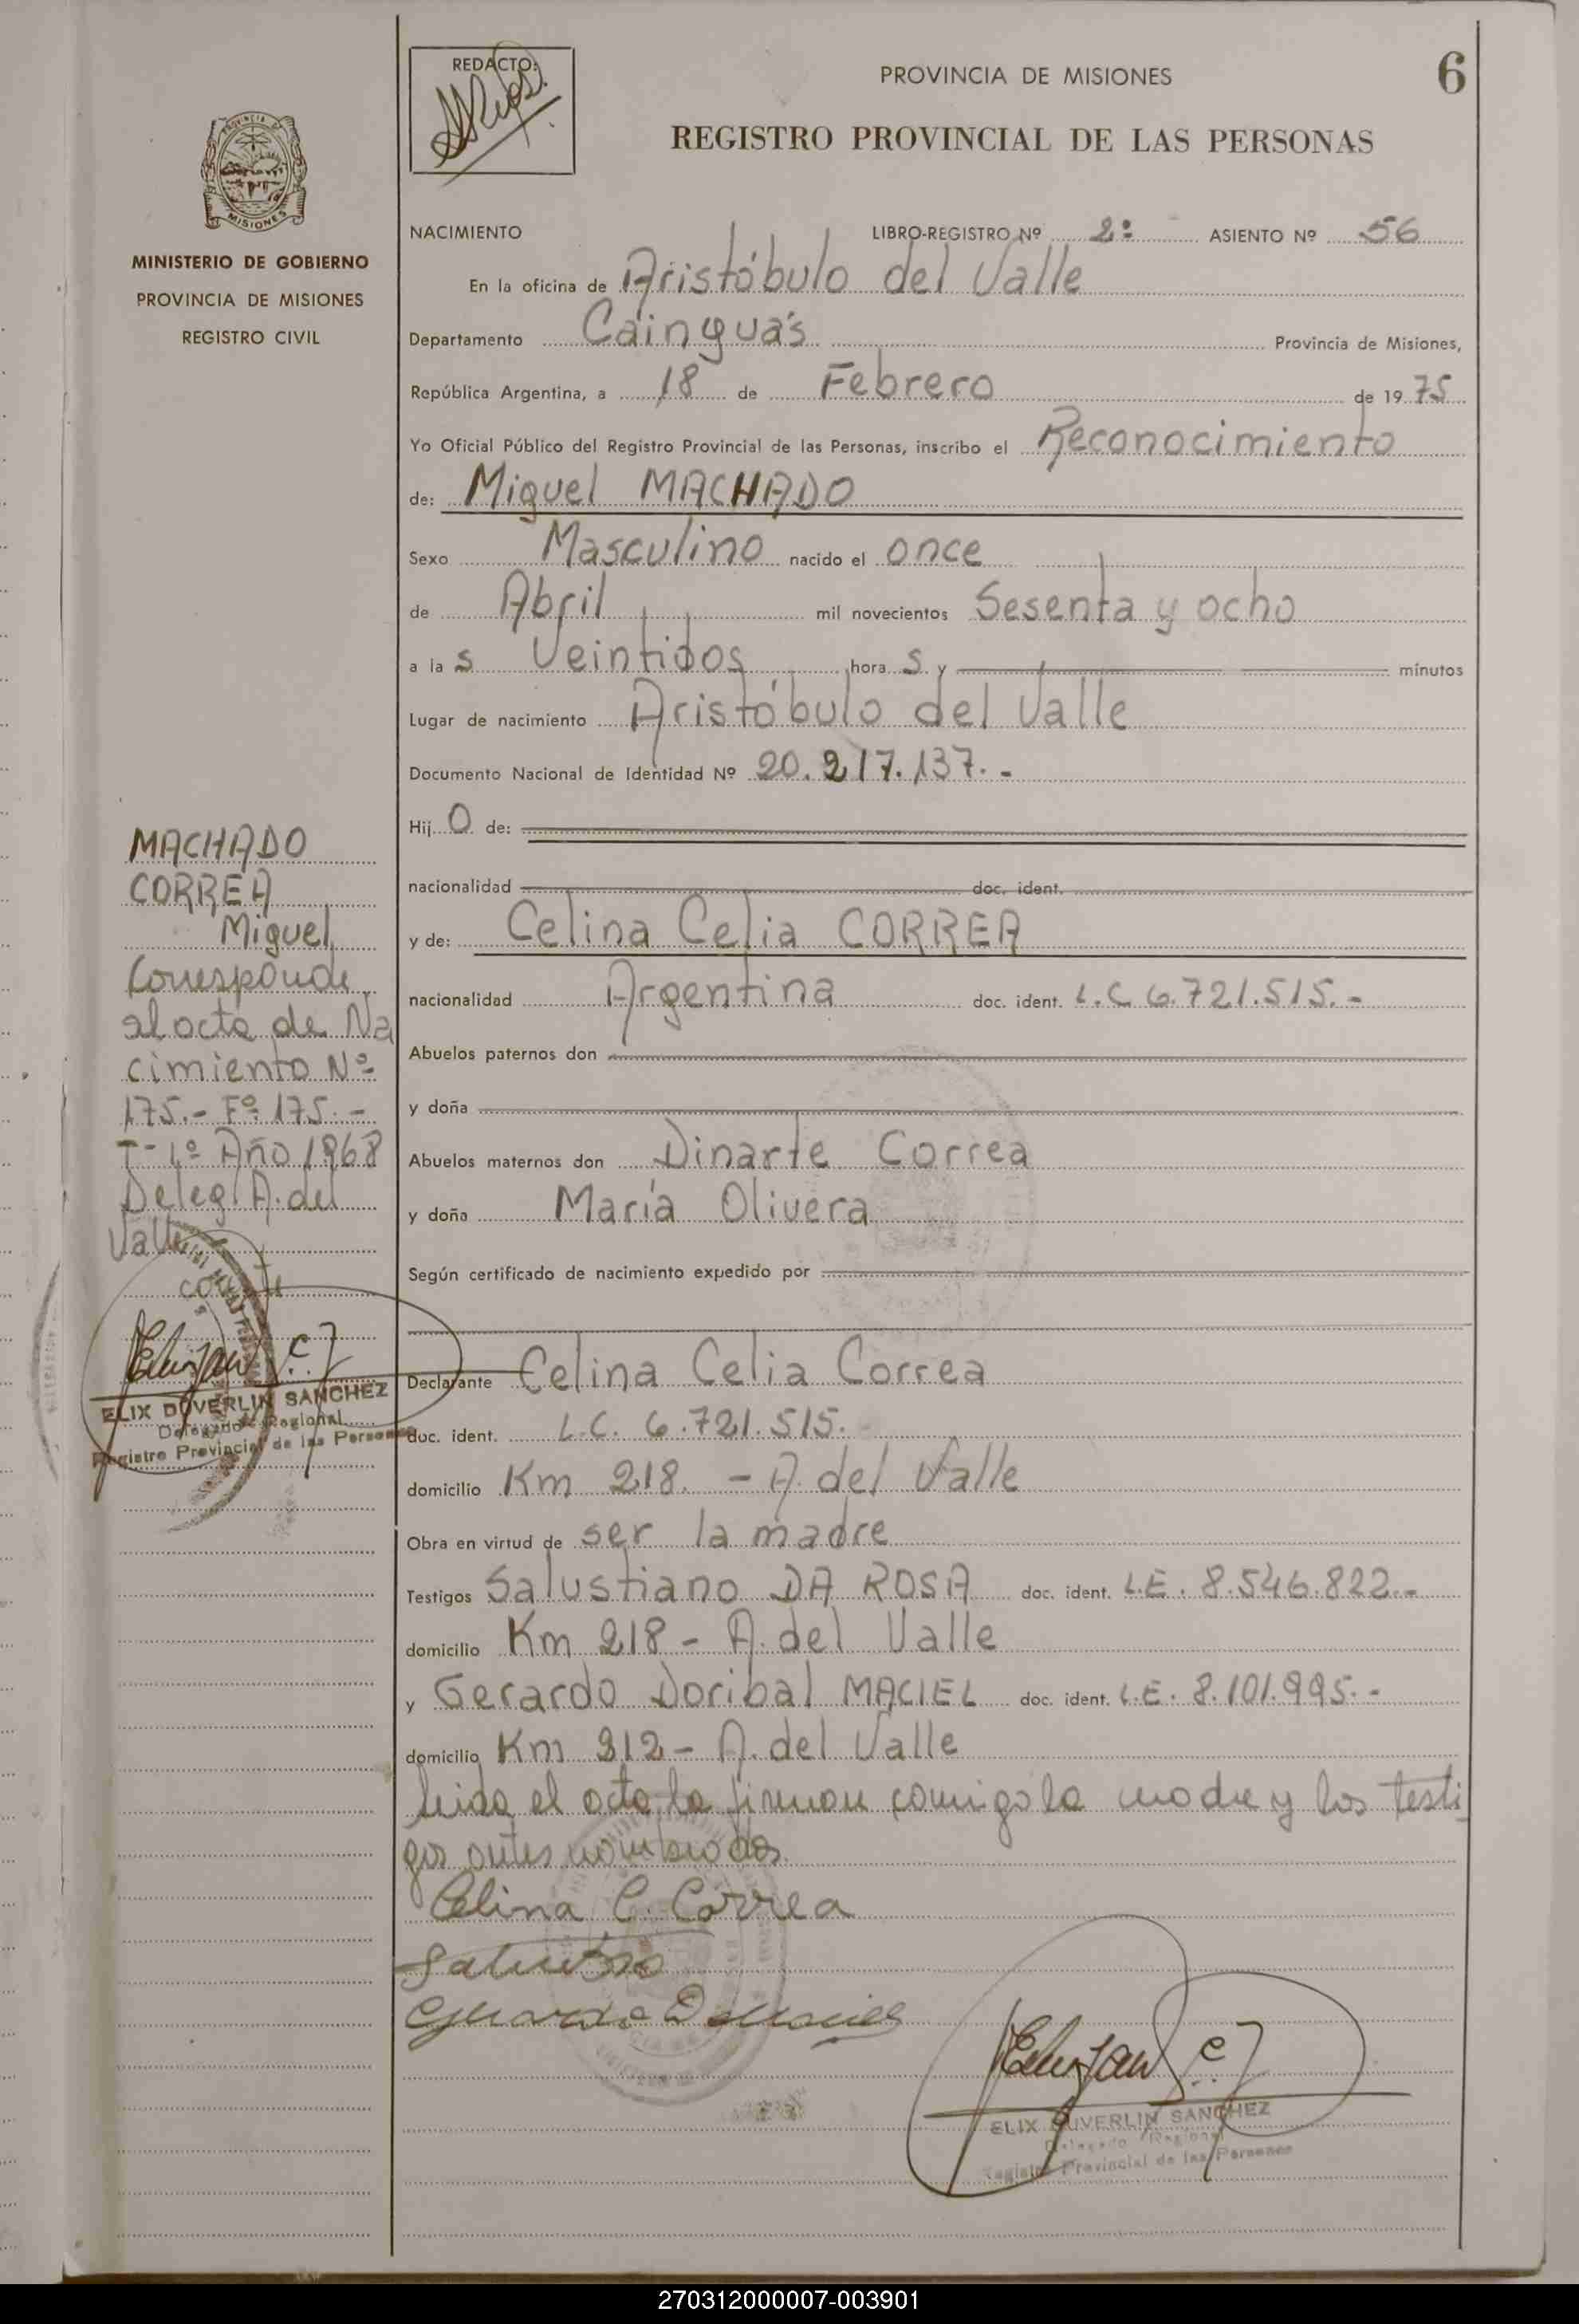 REDACTO:
PROVINCIA DE MISIONES
6
REGISTRO PROVINCIAL DE LAS PERSONAS
MISIONES
MINISTERIO DE GOBIERNO
PROVINCIA DE MISIONES
REGISTRO CIVIL
NACIMIENTO LIBRO-REGISTRO Nº 2º ASIENTO Nº 56
En la oficina de Aristóbulo del Valle
Departamento Cainguás Provincia de Misiones,
República Argentina, a 18 de Febrero de 1975
Yo Oficial Público del Registro Provincial de las Personas, inscribo el Reconocimiento
de: Miguel MACHADO
Sexo Masculino nacido el once
de Abril mil novecientos Sesenta y ocho
a la s Veintidos hora s y minutos
Lugar de nacimiento Aristóbulo del Valle
Documento Nacional de Identidad Nº 20.217.137.-
Hij O de:
nacionalidad doc. ident.
y de: Celina Celia CORREA
nacionalidad Argentina doc. ident. L.C 6.721.515.-
Abuelos paternos don
y doña
Abuelos maternos don Dinarte Correa
y doña María Olivera
Según certificado de nacimiento expedido por
Declarante Celina Celia Correa
doc. ident. L.C. 6.721.515.
domicilio Km 218. - A. del Valle
Obra en virtud de ser la madre
Testigos Salustiano DA ROSA doc. ident. L.E. 8.546.822.-
domicilio Km 218 - A. del Valle
y Gerardo Doribal MACIEL doc. ident. L.E. 8.101.995.-
domicilio Km 212 - A. del Valle
leida el acta, la firman comigo la madre y los testi
gos antes nombrados
Celina C. Correa
ELIX DUVERLIN SANCHEZ
Delegado Regional
Registro Provincial de las Personas
MACHADO
CORREA
Miguel
Corresponde
al acta de Na
cimiento Nº
175.- Fº 175.-
T- 1º Año 1968
Deleg. A. del
Valle
ELIX DUVERLIN SANCHEZ
Delegado Regional
Registro Provincial de las Personas
270312000007-003901